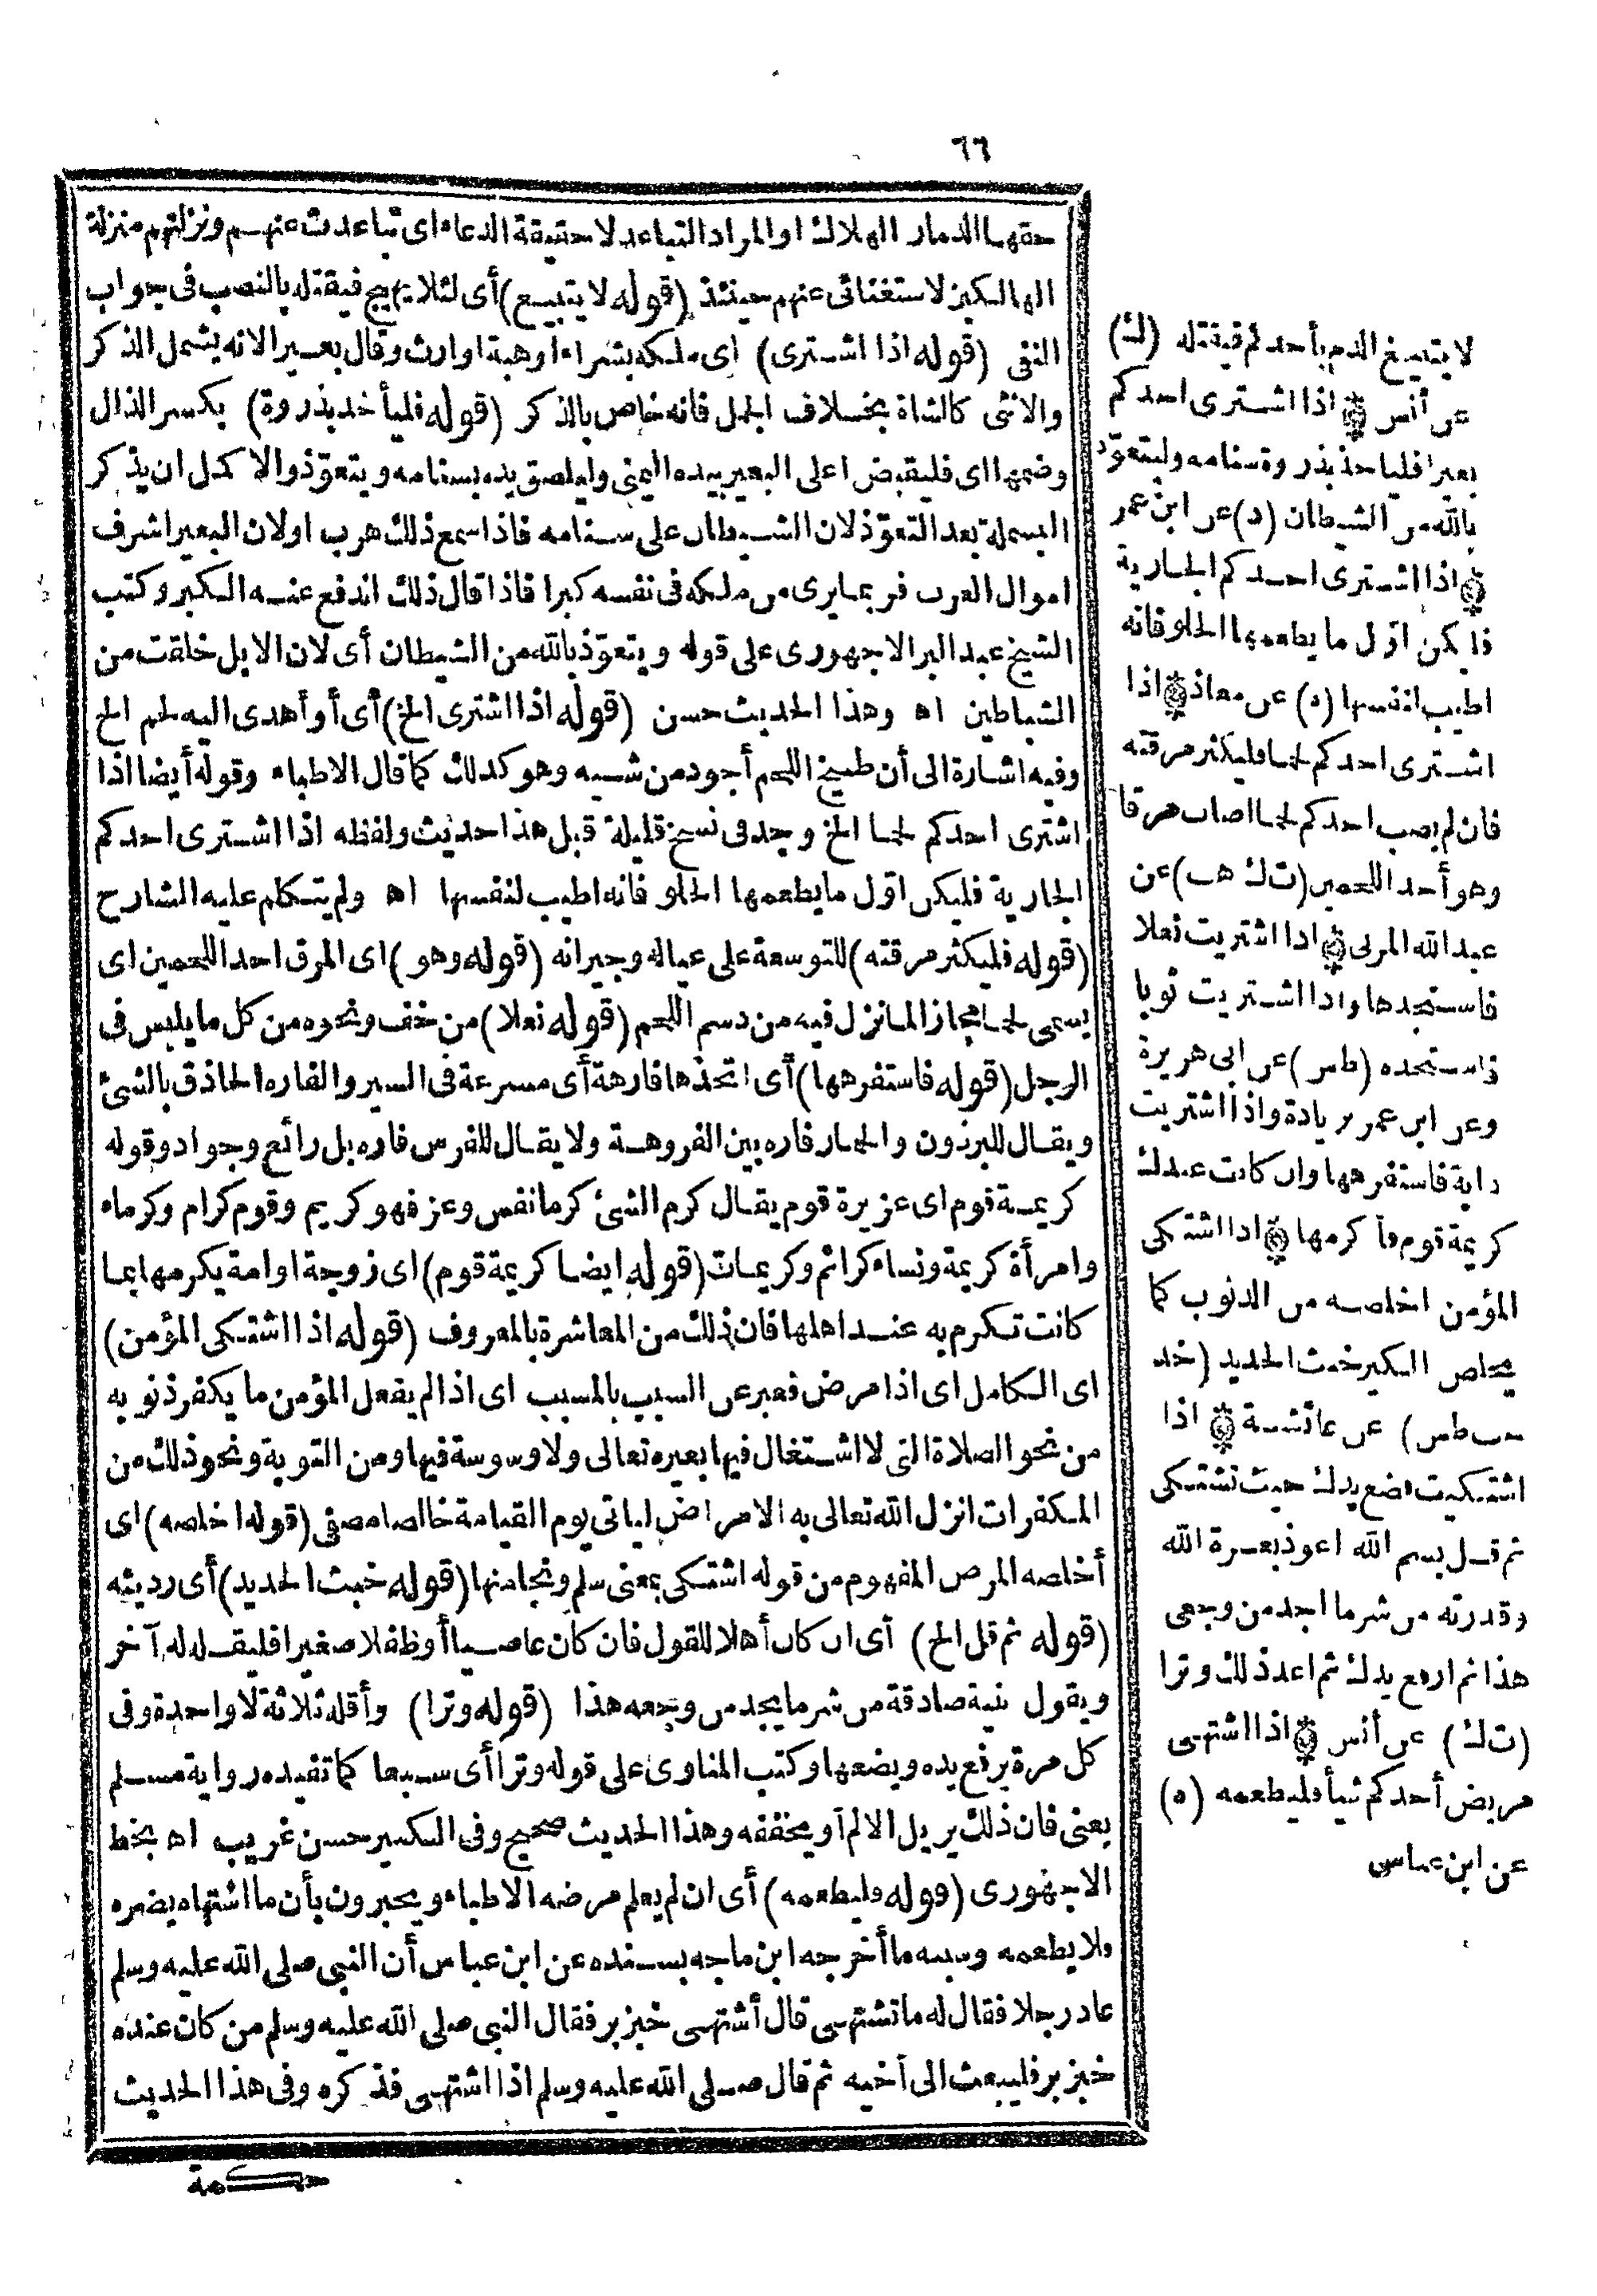 ٦٦
حقها الدمار الهلاك او المراد التباعد لا حقيقة الدعاء اى تباعدت عنهم ونزلتهم منزلة
الهالكين لاستغنائى عنهم حينئذ (قوله لا يتبيغ) أى لئلا يهيج فيقتله بالنصب فى جواب
النفى (قوله اذا اشترى) اى ملكه بشراء او هبة او ارث وقال بعير الانه يشمل الذكر
والانثى كالشاة بخلاف الجمل فانه خاص بالذكر (قوله فليأخذ بذروة) بكسر الذال
وضمها اى فليقبض اعلى البعير بيده اليمنى وليلصق يده بسنامه ويتعوّذ والا كمل ان يذكر
البسملة بعد التعوّذ لان الشيطان على سنامه فاذا سمع ذلك هرب اولان البعير اشرف
اموال العرب فربما يرى من ملكه فى نفسه كبرا فاذا قال ذلك اندفع عنه الكبر وكتب
الشيخ عبد البر الاجهورى على قوله ويتعوّذ بالله من الشيطان أى لان الابل خلقت من
الشياطين اه وهذا الحديث حسن (قوله اذا اشترى الخ) أى أو أهدى اليه لحم الخ
وفيه اشارة الى أن طبيخ اللحم أجود من شيه وهو كذلك كما قال الاطباء وقوله أيضا اذا
اشترى احدكم لحما الخ وجد فى نسخ قليلة قبل هذا حديث ولفظه اذا اشترى احدكم
الجارية فليكن اوّل ما يطعمها الحلو فانه اطيب لنفسها اه ولم يتكلم عليه الشارح
(قوله فليكثر مرقته) للتوسعة على عياله وجيرانه (قوله وهو) اى المرق احد اللحمين اى
يسمى لحما مجازا لما نزل فيه من دسم اللحم (قوله نعلا) من خف ونحوه من كل ما يلبس فى
الرجل (قوله فاستفرهها) أى اتخذها فارهة أى مسرعة فى السير والفاره الحاذق بالشئ
ويقال للبرذون والحمار فاره بين الفروهة ولا يقال للفرس فاره بل رائع وجواد وقوله
كريمة قوم اى عزيزة قوم يقال كرم الشئ كرما نفس وعز فهو كريم وقوم كرام وكرماء
وامرأة كريمة ونساء كرائم وكريمات (قوله ايضا كريمة قوم) اى زوجة او امة يكرمها بما
كانت تكرم به عند اهلها فان ذلك من المعاشرة بالمعروف (قوله اذا اشتكى المؤمن)
اى الكامل اى اذا مرض فعبر عن السبب بالمسبب اى اذا لم يفعل المؤمن ما يكفر ذنوبه
من نحو الصلاة التى لا اشتغال فيها بغيره تعالى ولا وسوسة فيها ومن التوبة ونحو ذلك من
المكفرات انزل الله تعالى به الامراض ليأتى يوم القيامة خالصا مصفى (قوله اخلصه) اى
أخلصه المرض المفهوم من قوله اشتكى بمعنى سلم ونجا منها (قوله خبث الحديد) أى رديئه
(قوله ثم قل الخ) أى ان كان أهلا للقول فان كان عاصيا أو ظفلا صغيرا فليقل له آخر
ويقول بنية صادقة من شر ما يجد من وجعه هذا (قوله وترا) وأقله ثلاثة لا واحدة وفى
كل مرة يرفع يده ويضعها وكتب المناوى على قوله وترا أى سبعا كما تفيده رواية مسلم
يعنى فان ذلك يزيل الالم أو يخففه وهذا الحديث صحيح وفى الكبير حسن غريب اه بخط
الاجهورى (قوله فليطعمه) أى ان لم يعلم مرضه الاطباء ويخبرون بأن ما اشتهاه يضره
فلا يطعمه وسببه ما أخرجه ابن ماجه بسنده عن ابن عباس أن النبى صلى الله عليه وسلم
عاد رجلا فقال له ما تشتهى قال أشتهى خبز بر فقال النبى صلى الله عليه وسلم من كان عنده
خبز بر فليبعث الى أخيه ثم قال صلى الله عليه وسلم اذا اشتهى فذكره وفى هذا الحديث
حكمة
لا يتبيغ الدم بأحدكم فيقتله (ك)
عن أنس اذا اشترى احدكم
بعيرا فليأخذ بذروة سنامه وليتعوّذ
بالله من الشيطان (د) عن ابن عمر
اذا اشترى احدكم الجارية
فليكن اوّل ما يطعمها الحلو فانه
اطيب لنفسها (ه) عن معاذ اذا
اشترى احدكم لحما فليكثر مرقته
فان لم يصب احدكم لحما اصاب مرقا
وهو أحد اللحمين (ت ك هب) عن
عبد الله المزنى اذا اشتريت نعلا
فاستجدها واذا اشتريت ثوبا
فاستجده (طس) عن ابى هريرة
وعن ابن عمر بزيادة واذا اشتريت
دابة فاستفرهها وان كانت عندك
كريمة قوم فأكرمها اذا اشتكى
المؤمن اخلصه من الذنوب كما
يخلص الكير خبث الحديد (خد
حب طس) عن عائشة اذا
اشتكيت فضع يدك حيث تشتكى
ثم قل بسم الله اعوذ بعزة الله
وقدرته من شر ما اجد من وجعى
هذا ثم ارفع يدك ثم اعد ذلك وترا
(ت ك) عن أنس اذا اشتهى
مريض أحدكم شيأ فليطعمه (ه)
عن ابن عباس